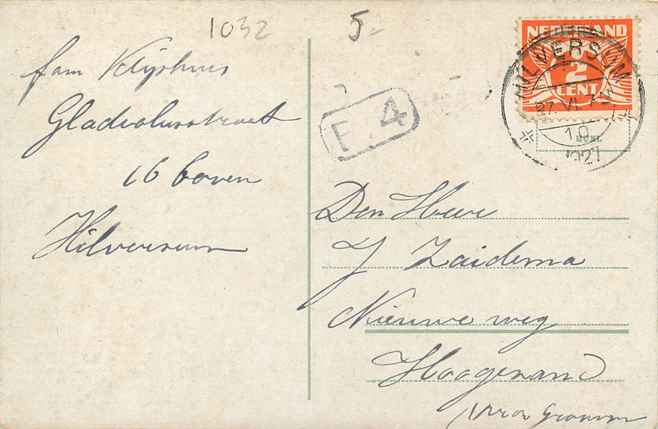 1032
5-
fam Klijshuis
Gladiolusstraat
16 boven
Hilversum
F 4
NEDERLAND
2
CENT
HILVERSUM
10
1927
Den Heer
J Zaidema
Nieuwe weg
Hoogezand